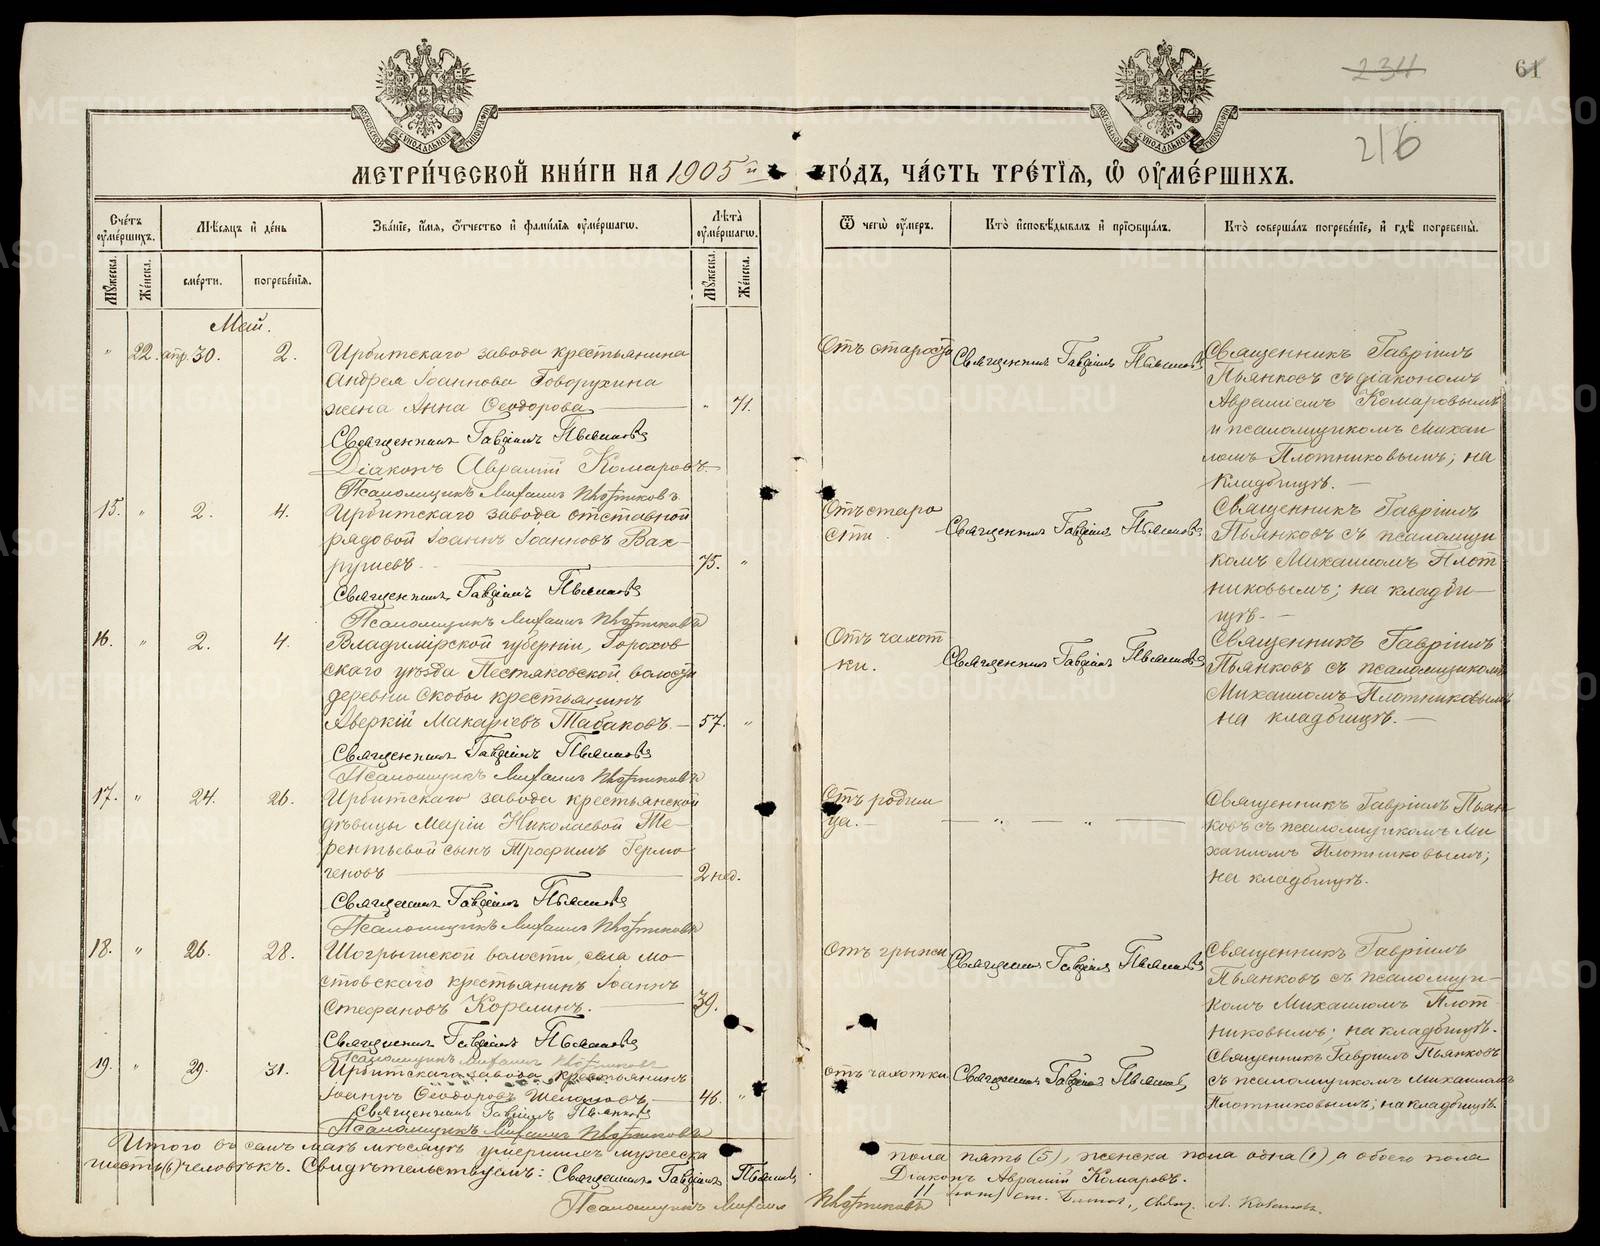 234
61
216
МЕТРИ́ЧЕСКОЙ КНИ́ГИ НА 1905й ГО́ДЪ, ЧА́СТЬ ТРЕ́ТІѦ, Ѿ ОУМЕ́РШИХЪ.
Сче́тъ оуме́ршихъ.
Мѣ́сяцъ и де́нь
Зва́ніе, и́мя, о́тчество и фами́лія оуме́ршагѡ.
Лѣ́та оуме́ршагѡ.
Ѿ чегѡ̀ оу́меръ.
Кто̀ исповѣ́дывалъ и пріѡбща́лъ.
Кто̀ соверша́лъ погребе́ніе, и гдѣ̀ погребены̀.
Му́жеска.
Же́нска.
сме́рти.
погребе́нія.
Му́жеска.
Же́нска.
Май.
" 22. апр. 30. 2.
Ирбитскаго завода крестьянина
Андрея Іоаннова Говорухина
жена Анна Ѳеодорова " 71.
Священникъ Гавріилъ Пьянковъ
Діаконъ Авраамій Комаровъ
Псаломщикъ Михаилъ Плотниковъ
Отъ старости
Священникъ Гавріилъ Пьянковъ
Священникъ Гавріилъ
Пьянковъ съ діакономъ
Авраміемъ Комаровымъ
и псаломщикомъ Михаи
ломъ Плотниковымъ; на
кладбищѣ.
15. " 2. 4.
Ирбитскаго завода отставной
рядовой Іоаннъ Іоанновъ Вах-
рушевъ 75. "
Священникъ Гавріилъ Пьянковъ
Псаломщикъ Михаилъ Плотниковъ
Отъ старо
сти
Священникъ Гавріилъ Пьянковъ
Священникъ Гавріилъ
Пьянковъ съ псаломщи
комъ Михаиломъ Плот
никовымъ; на кладби-
щѣ.
16. " 2. 4.
Владимірской губерніи, Горохов
скаго уѣзда Пестяковской волости
деревни Скобы крестьянинъ
Аверкій Макаріевъ Табаковъ 57. "
Священникъ Гавріилъ Пьянковъ
Псаломщикъ Михаилъ Плотниковъ
Отъ чахот
ки.
Священникъ Гавріилъ Пьянковъ
Священникъ Гавріилъ
Пьянковъ съ псаломщикомъ
Михаиломъ Плотниковымъ
на кладбищѣ.
17. " 24. 26.
Ирбитскаго завода крестьянской
дѣвицы Маріи Николаевой Те-
рентьевой сынъ Трофимъ Гермо
геновъ 2 нед.
Священникъ Гавріилъ Пьянковъ
Псаломщикъ Михаилъ Плотниковъ
Отъ родим
ца.
" "
Священникъ Гавріилъ Пьян
ковъ съ псаломщикомъ Ми
хаиломъ Плотниковымъ;
на кладбищѣ.
18. " 26. 28.
Шогришской волости, села Мо-
стовскаго крестьянинъ Іоаннъ
Стефановъ Корелинъ. 39.
Священникъ Гавріилъ Пьянковъ
Псаломщикъ Михаилъ Плотниковъ
Отъ грыжи
Священникъ Гавріилъ Пьянковъ
Священникъ Гавріилъ
Пьянковъ съ псаломщи-
комъ Михаиломъ Плот
никовымъ; на кладбищѣ.
19. " 29. 31.
Ирбитскаго завода крестьянинъ
Іоаннъ Ѳеодоровъ 46. "
Священникъ Гавріилъ Пьянковъ
Псаломщикъ Михаилъ Плотниковъ
Отъ чахотки
Священникъ Гавріилъ Пьянковъ
Священникъ Гавріилъ Пьянковъ
съ псаломщикомъ Михаиломъ
Плотниковымъ; на кладбищѣ.
Итого въ семъ маѣ мѣсяцѣ умершихъ мужеска пола пять (5), женска пола одна (1), а обоего пола
шесть (6) человѣкъ. Свидѣтельствуемъ: Священникъ Гавріилъ Пьянковъ
Діаконъ Аврамій Комаровъ.
Псаломщикъ Михаилъ Плотниковъ
METRIKI.GASO-URAL.RU